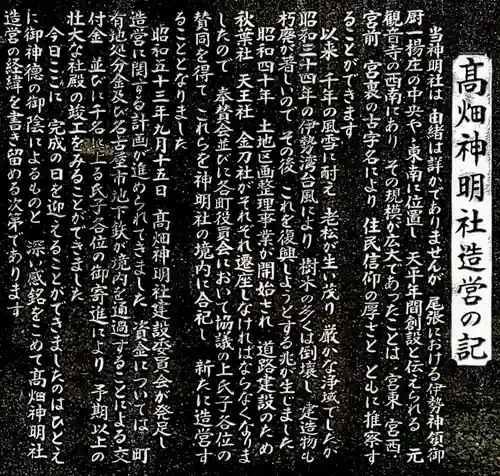 高畑神明社造営の記
当神明社は 由緒は詳かでありませんが 尾張における伊勢神領御
厨一楊庄の中央やゝ東南に位置し 天平年間創設と伝えられる 元
観音寺の西南にあり その規模が広大であったことは 宮東 宮西
宮前 宮裏の古字名により 住民信仰の厚さと ともに推察す
ることができます
以来 千年の風雪に耐え 老松が生い茂り 厳かな浄域でしたが
昭和三十四年の伊勢湾台風により 樹木の多くは倒壊し 建造物も
朽廃が著しいので その後 これを復興しようとする兆が生じました
昭和四十年 土地区画整理事業が開始され 道路建設のため
秋葉社 天王社 金刀社がそれぞれ遷座しなければならなくなりま
したので 奉賛会並びに各町役員会において協議の上氏子各位の
賛同を得て これらを神明社の境内に合祀し 新たに造営す
ることとなりました
昭和五十三年九月十五日 高畑神明社建設委員会が発足し
造営に関する計画が進められてきました 資金については 町
有地処分金及び名古屋市地下鉄が境内を通過することによる交
付金 並びに千名に上る氏子各位の御寄進により 予期以上の
壮大な社殿の竣工をみることができました
今日ここに 完成の日を迎えることができましたのはひとえ
に御神徳の御陰によるものと 深い感銘をこめて高畑神明社
造営の経緯を書き留める次第であります